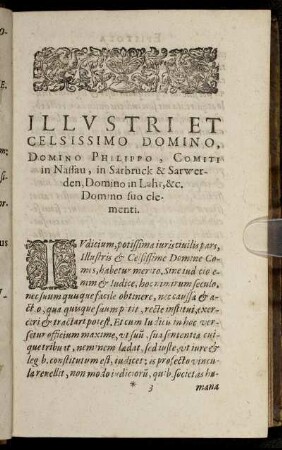 ILLVSTRI ET
CELSISSIMO DOMINO,
DOMINO PHILIPPO, COMITI
in Nassau, in Sarbruck & Sarwer-
den, Domino in Lahr, &c.
Domino suo cle-
menti.
IVdicium, potissima iuris ciuilis pars,
Illustris & Celsissime Domine Co-
mes, habetur merito, Sine iudicio e-
nim & Iudice, hoc in rerum seculo,
nec suum quisque facile obtinere, nec caussa & a-
ctio, qua quisque suum petit, recte institui, exer-
ceri & tractari potest. Et cum Iudicis in hoc ver-
setur officium maxime, vt suū, sua sententia cui-
que tribuat, neminem lædat, sed iuste, vt iure &
legib. constitutum est, iudicet: is profecto vincu-
la reuellit, non modo iudiciorū, quib. societas hu-
* 3 mana